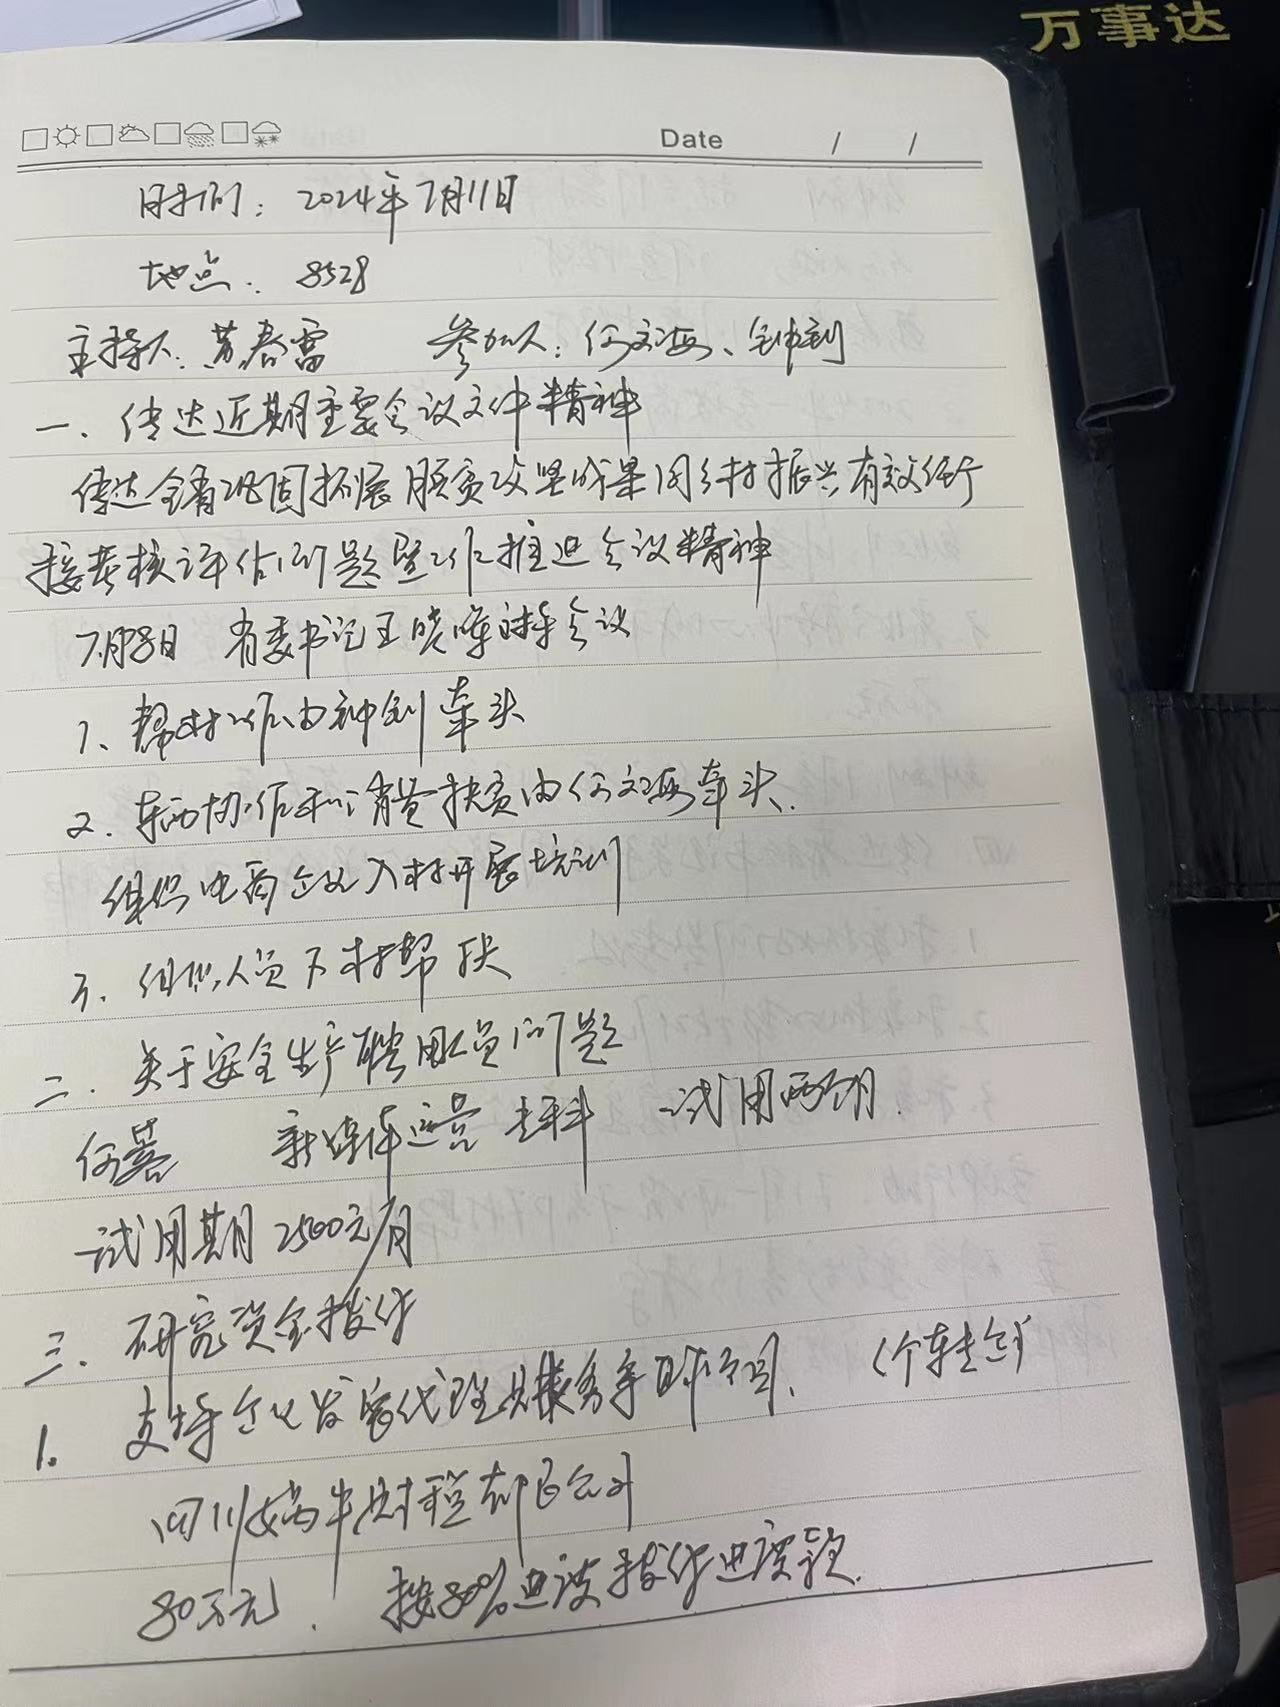 万事达
Date / /
时间：2024年7月11日
地点：8528
主持人：黄春雷 参加人：何文海、钟钊
一、传达近期重要会议文件精神
传达全省巩固拓展脱贫攻坚成果同乡村振兴有效衔
接考核评估问题暨工作推进会议精神
7月8日 省委书记王晓晖主持会议
1、帮村工作由钟钊牵头
2、东西协作和消费扶贫由何文海牵头.
组织电商企业入村开展培训
3、组织人员下村帮扶
二、关于安全生产聘用人员问题
何 新媒体运营 试用两个月.
试用期2500元/月
三、研究资金拨付
1、支持企业发展代理服务项目、
四川 财税有限公司
80万元、 按80%进度拨付进度款.